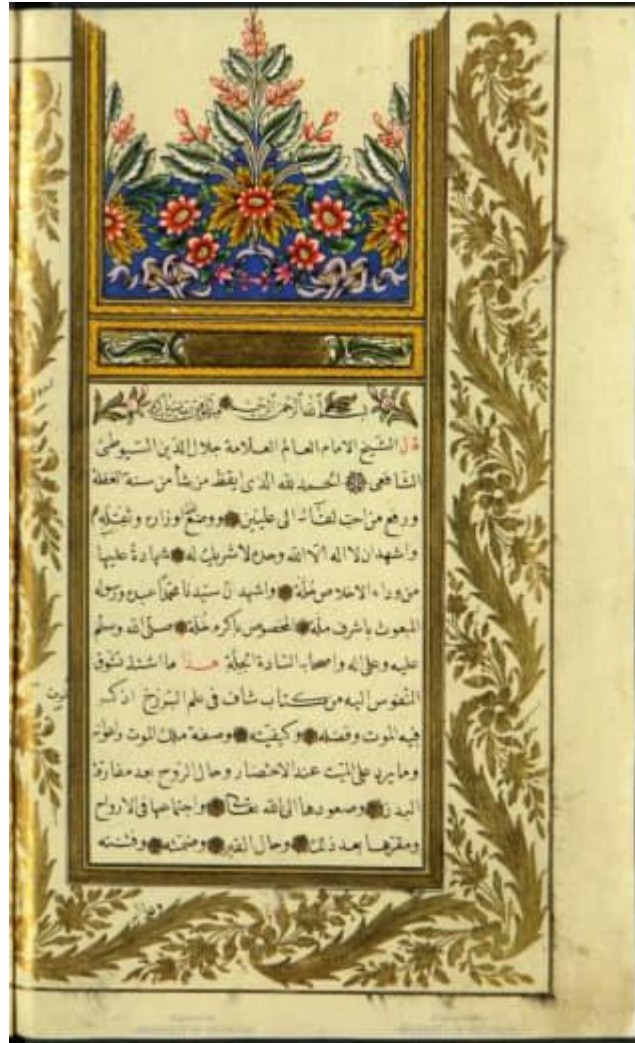 بسم الله الرحمن الرحيم
قال الشيخ الامام العالم العلامة جلال الدين السيوطى
الشافعى الحمد لله الذى ايقظ من شأ من سنة الغفلة
ورفع من احب لقائه الى عليين ووضع اوزاره وثقله
واشهد ان لا اله الا الله وحده لا شريك له شهادة عليها
من وراء الاخلاص حُلّة واشهد انّ سيّدنا محمّدًا عبده ورسوله
المبعوث باشرف ملّة المخصوص باكرم خُلّة صلى الله وسلم
عليه وعلى اله واصحابه السّادة الجلّة هذا ما اشتد تشوّق
النّفوس اليه من كتاب شاف فى علم البرزخ اذكر
فيه الموت وفضله وكيفيّته وصفة ملك الموت واعوانه
وما يرد على الميّت عند الاحتضار وحال الرّوح بعد مفارقة
البدن وصعودها الى الله تعالى واجتماعها فى الارواح
ومقرّها بعد ذلك وحال القبر وضمّته وفتنته